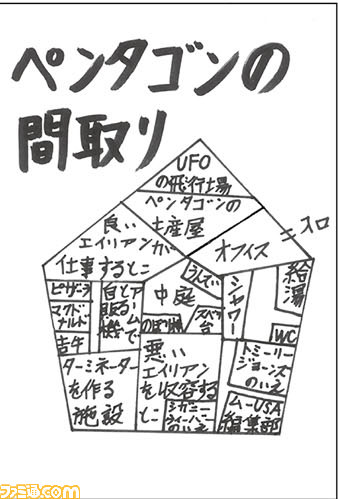 ペンタゴンの
間取り
UFO
の飛行場
ペンタゴンの
土産屋
良い
エイリアンが
仕事するとこ
オフィス
ニスロ
うんてい
中庭
すべり台
のぼり棒
シャワー
給湯
WC
ピザーラ
マクドナルド
吉牛
アームで
白と
眠る
機
ターミネーター
を作る
施設
悪い
エイリアン
を収容する
とこ
シガニー
ウィーバー
のいえ
トミーリー
ジョーンズ
のいえ
ムーUSA
編集部
ファミ通.com